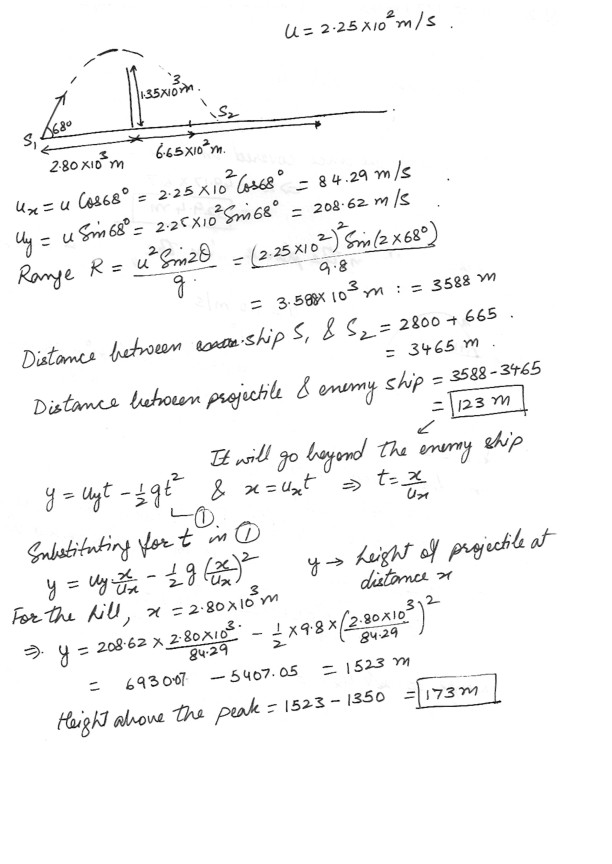 u = 2.25×10² m/s .
1.35×10³ m.
S₁
68°
S₂
2.80×10³ m
6.65×10² m.
uₓ = u Cos68° = 2.25×10² Cos68° = 84.29 m/s .
u_y = u Sin68° = 2.25×10² Sin68° = 208.62 m/s .
Range R = u² Sin2θ / g = (2.25×10²)² Sin(2×68°) / 9.8
= 3.588×10³ m : = 3588 m
Distance between ship S₁ & S₂ = 2800 + 665 .
= 3465 m .
Distance between projectile & enemy ship = 3588 - 3465
= 123 m
It will go beyond the enemy ship
y = u_y t - ½ g t² & x = uₓt ⇒ t = x/uₓ
①
Substituting for t in ①
y = u_y x/uₓ - ½ g (x/uₓ)² y → height of projectile at
distance x
For the hill, x = 2.80×10³ m
⇒ y = 208.62 × 2.80×10³/84.29 - ½ × 9.8 × (2.80×10³/84.29)²
= 6930.07 - 5407.05 = 1523 m
Height above the peak = 1523 - 1350 = 173 m